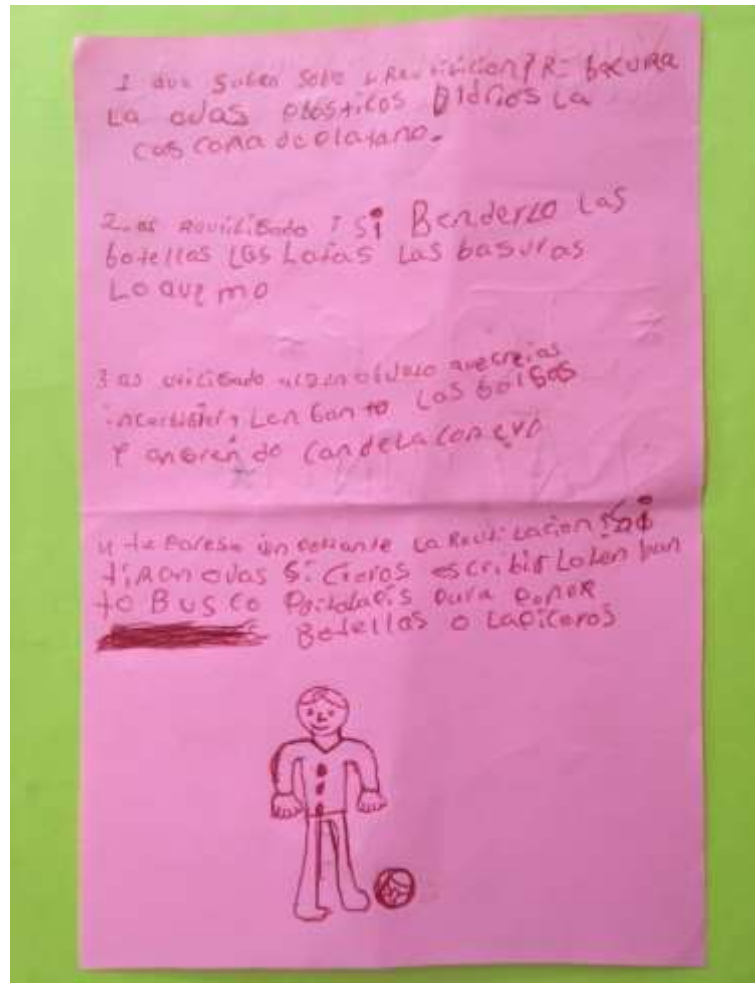 1 que sabes sobe la Reuicicion? R= bacura
La odas plasticos bidrios La
cascara de platano.
2. as Reuicilado? si Benderlo Las
botellas Las Latas Las basuras
Lo quemo
3 as utilizado algun obJeto que creias
Len Banto Las bolsas
Y anbren do candela con evo
4 te Parese in portante La Reuicilacion? si
tiRan odas Si Cieros escribir Lo Len ban
to BusCo Portalapis para poner
Botellas o Lapiceros